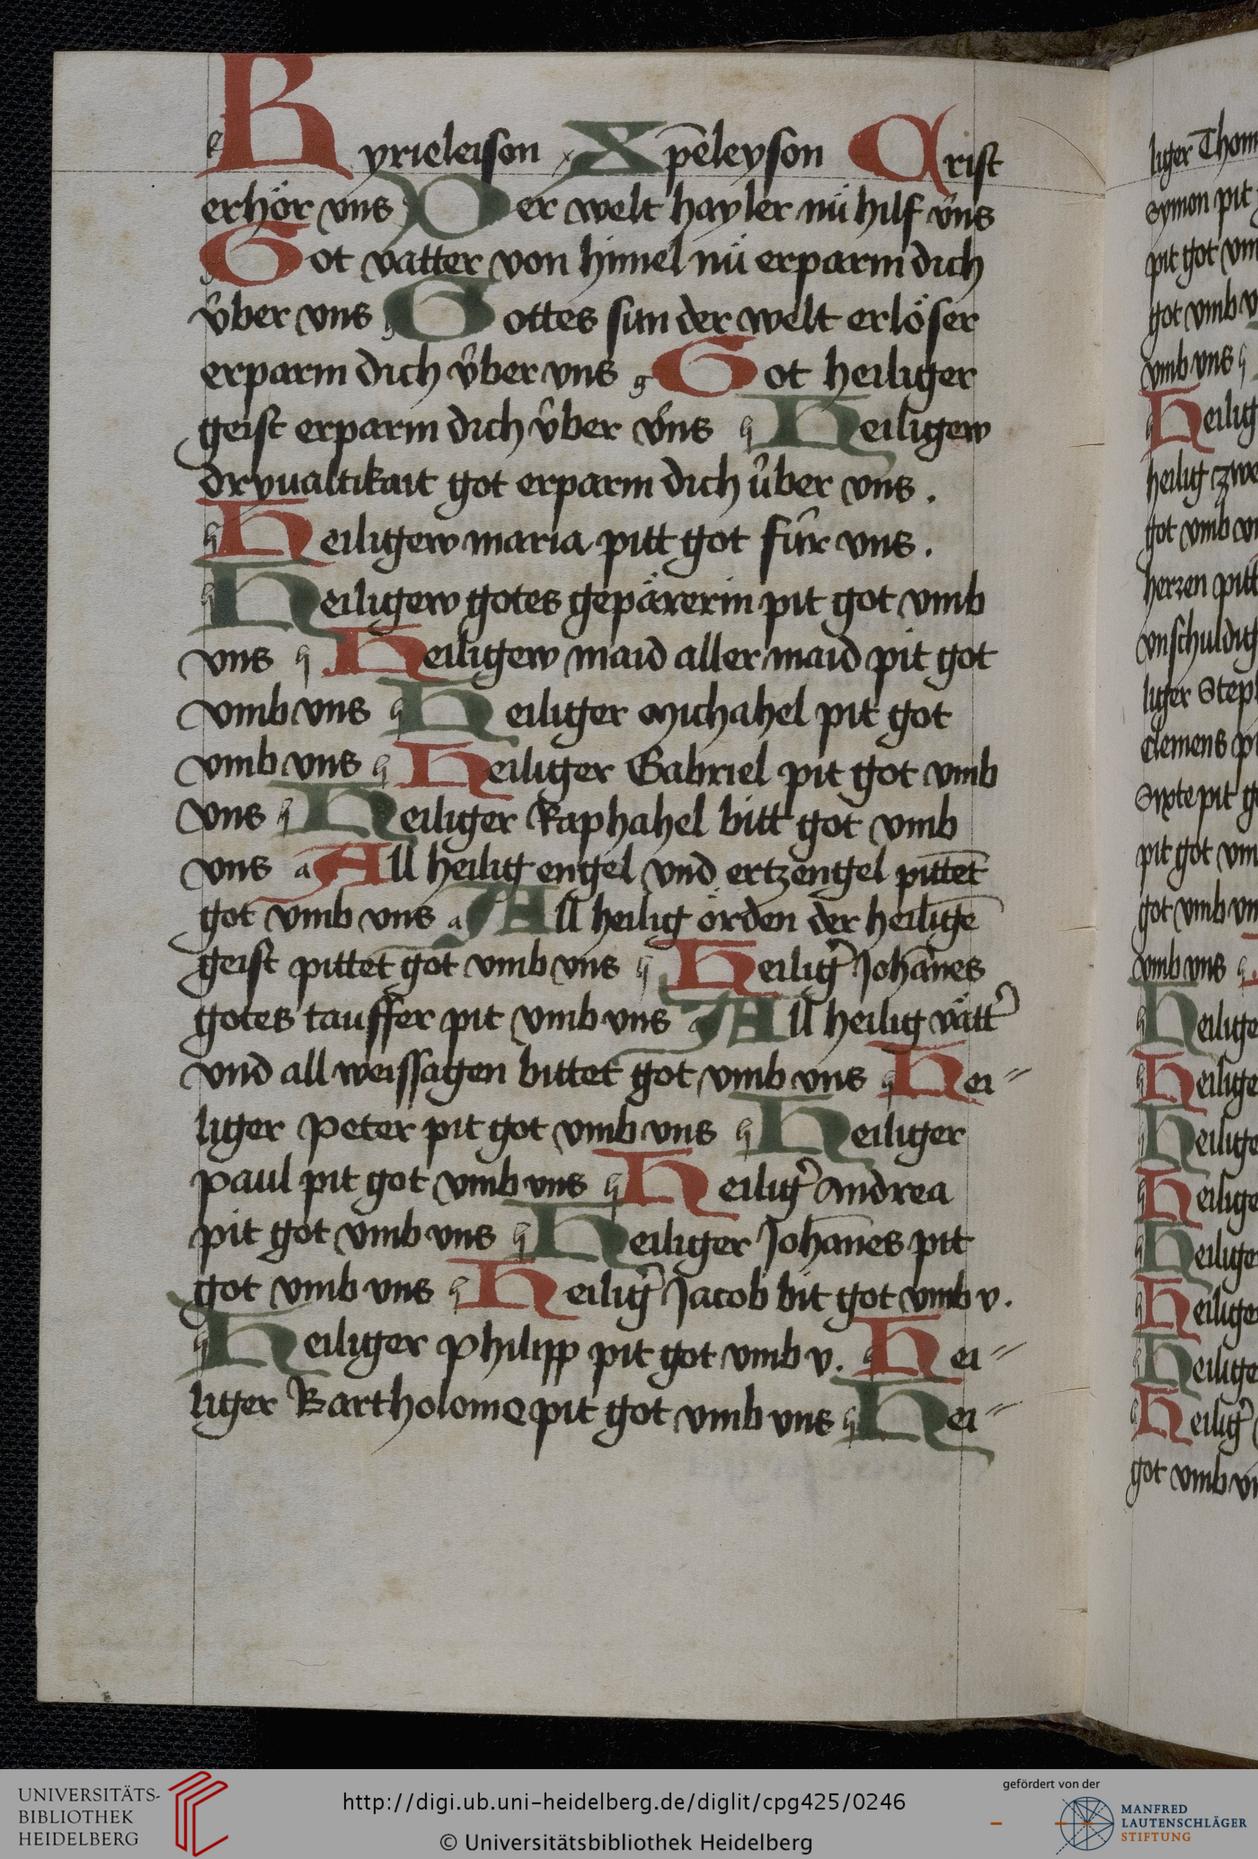 Kyrieleison Xp̄eleyson Crist
erhör vns Der welt hayler nü hilf v̂ns
Got vatter von himel nü erparm dich
v̂ber vns Gottes sun der welt erlöser
erparm dich v̂ber vns Got heiliger
geist erparm dich v̂ber v̂ns Heiligew
dryualtikait got erparm dich ûber vns.
Heiligew maria pitt got fûr vns.
Heiligew gotes gepärerin pit got vmb
vns Heiligew maid aller maid pit got
vmb vns Heiliger Michahel pit got
vmb vns Heiliger Gabriel pit got vmb
vns Heiliger Raphahel bitt got vmb
vns All heilig engel vnd ertzengel pittet
got vmb vns All heilig örden der heilige̅
geist pittet got vmb vns Heilig͛ Joha̅nes
gotes tauffer pit vmb vns All heilig vätt͛
vnd all weissagen bittet got vmb vns Hei=
liger Peter pit got vmb vns Heiliger
paul pit got vmb vns Heilig͛ Andrea
pit got vmb vns Heiliger Joha̅nes pit
got vmb vns Heilig͛ Jacob bit got vmb v.
Heiliger Philipp pit got vmb v. Hei=
liger Bartholome pit got vmb vns Hei=
liger Thom
Symon pit
pit got vm
got vmb v
vmb vns
Heilig
heilig zwe
got vmb vn
herzen pitt
vnschuldig
liger Steph
Clemens p
Sixte pit g
pit got vm
got vmb vn
vmb vns
Heilige
Heilige
Heilige
Heilige
Heilige
Heilige
Heilige
Heilig͛
got vmb vn
UNIVERSITÄTS-
BIBLIOTHEK
HEIDELBERG
http://digi.ub.uni-heidelberg.de/diglit/cpg425/0246
© Universitätsbibliothek Heidelberg
gefördert von der
MANFRED
LAUTENSCHLÄGER
STIFTUNG